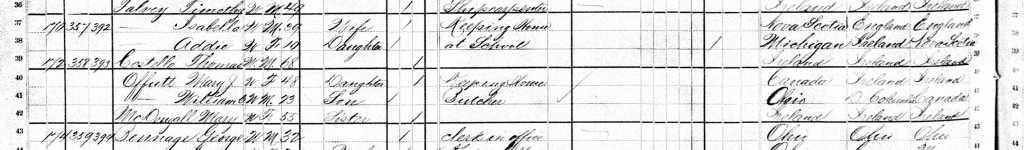 Falvey Timothy W M 49 Ireland Ireland Ireland
37 170 357 392 — Isabella W M 39 Wife 1 Keeping House Nova Scotia England England
38 Addie W F 10 Daughter 1 at School 1 Michigan Ireland Nova Scotia
39 172 358 393 Costello Thomas W M 68 Ireland Ireland Ireland
40 Offutt Mary J W F 48 Daughter Keeping House Canada Ireland Ireland
41 — William W M 23 Son Butcher Ohio Canada
42 McDougall Mary W F 55 Sister Ireland Ireland Ireland
43 174 359 394 George W M 32 1 clerk in office Ohio Ohio Ohio